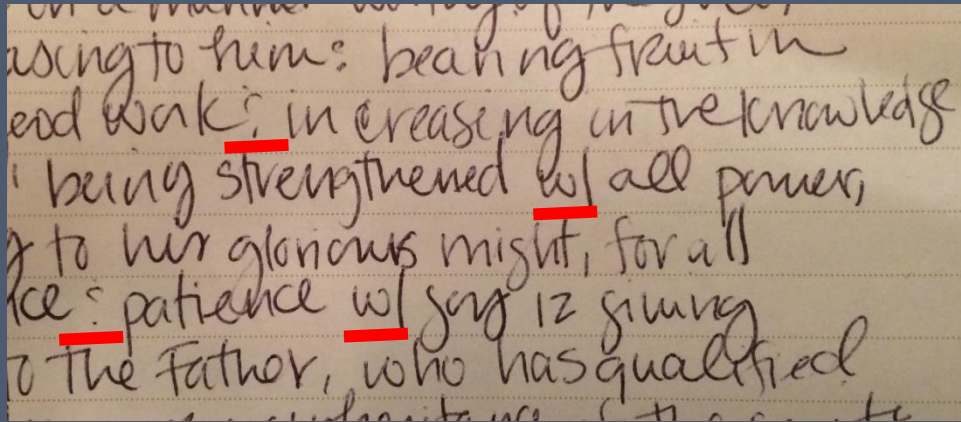 a manner
asing to him: bearing fruit in
ood work : increasing in the knowledge
being strengthened w/ all power,
g to his glorious might, for all
ce : patience w/ joy 12 giving
o the Father, who has qualified
inheritance of the